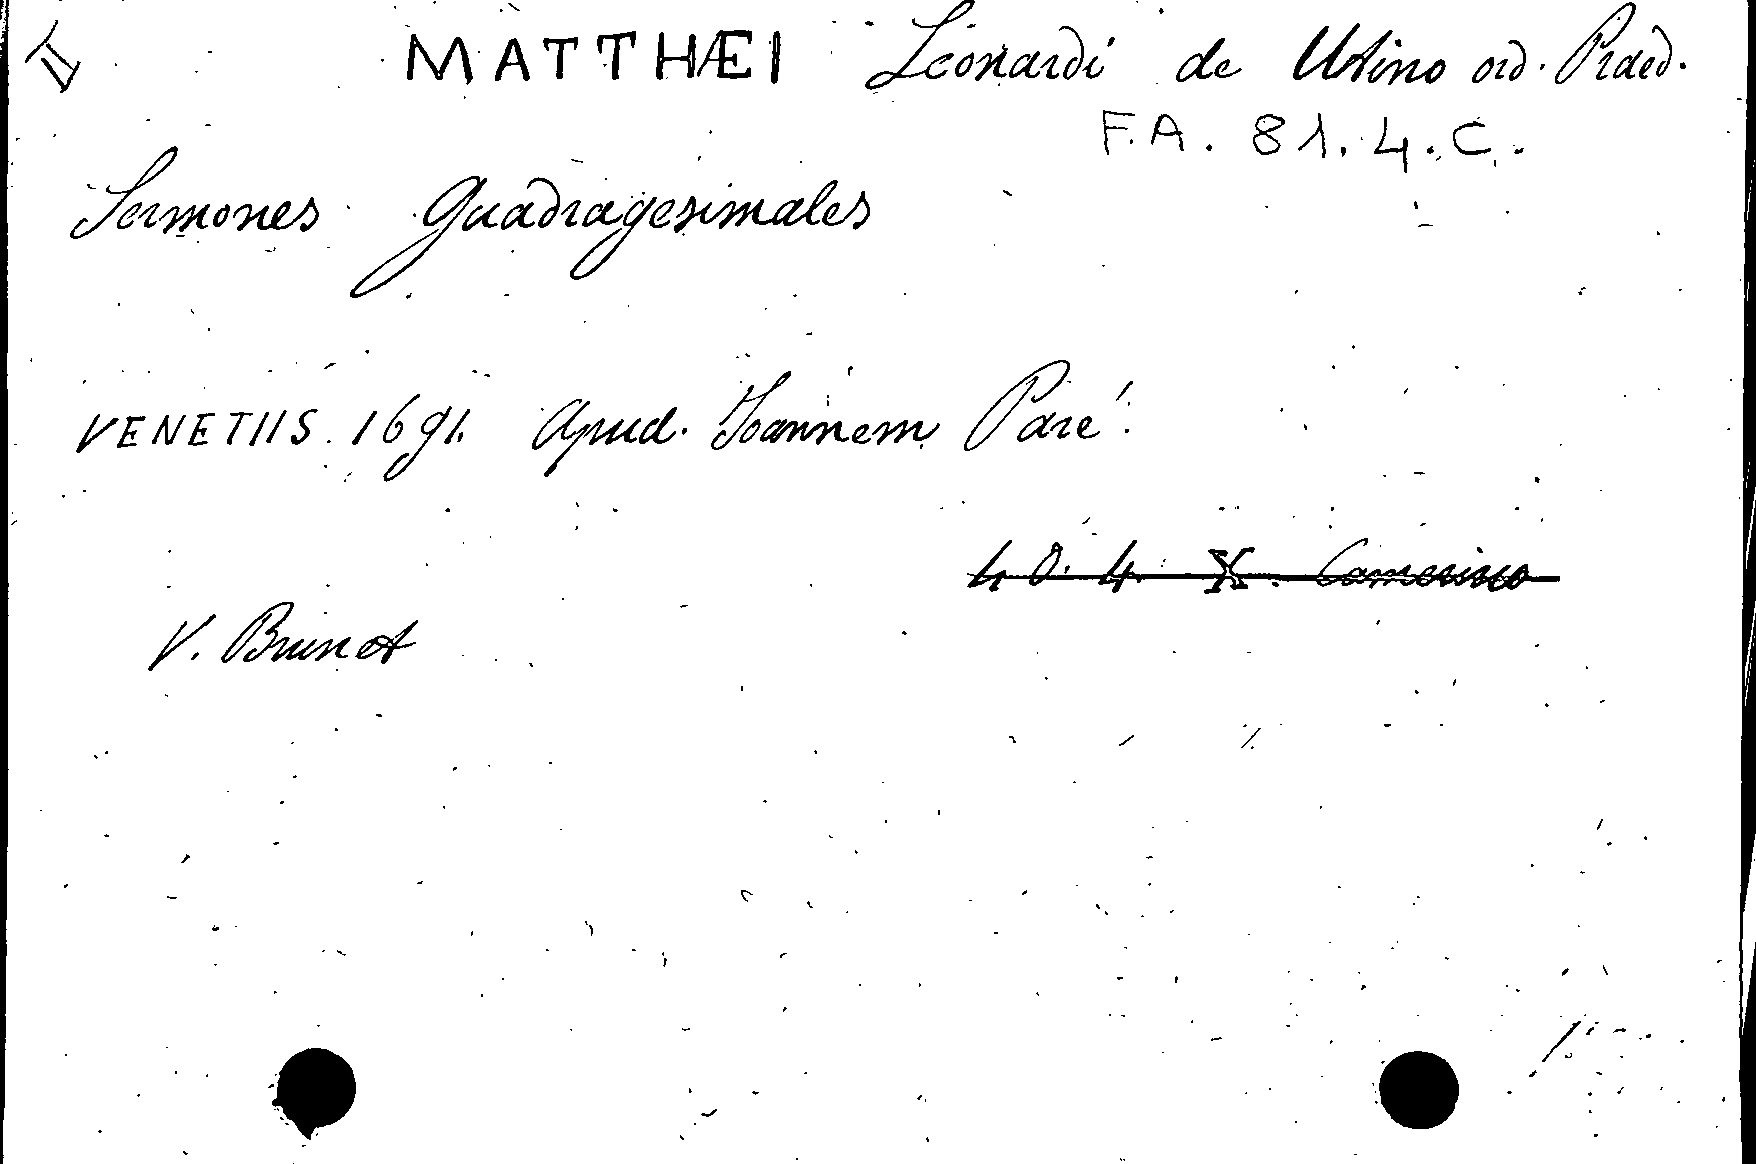 II MATTHÆI Leonardi de Utino ord. Praed.
F.A. 81.4.C.
Sermones Quadragesimales
VENETIIS. 1691. Apud. Ioannem Paré.
4 0. 4. X. Camerino
V. Brunet